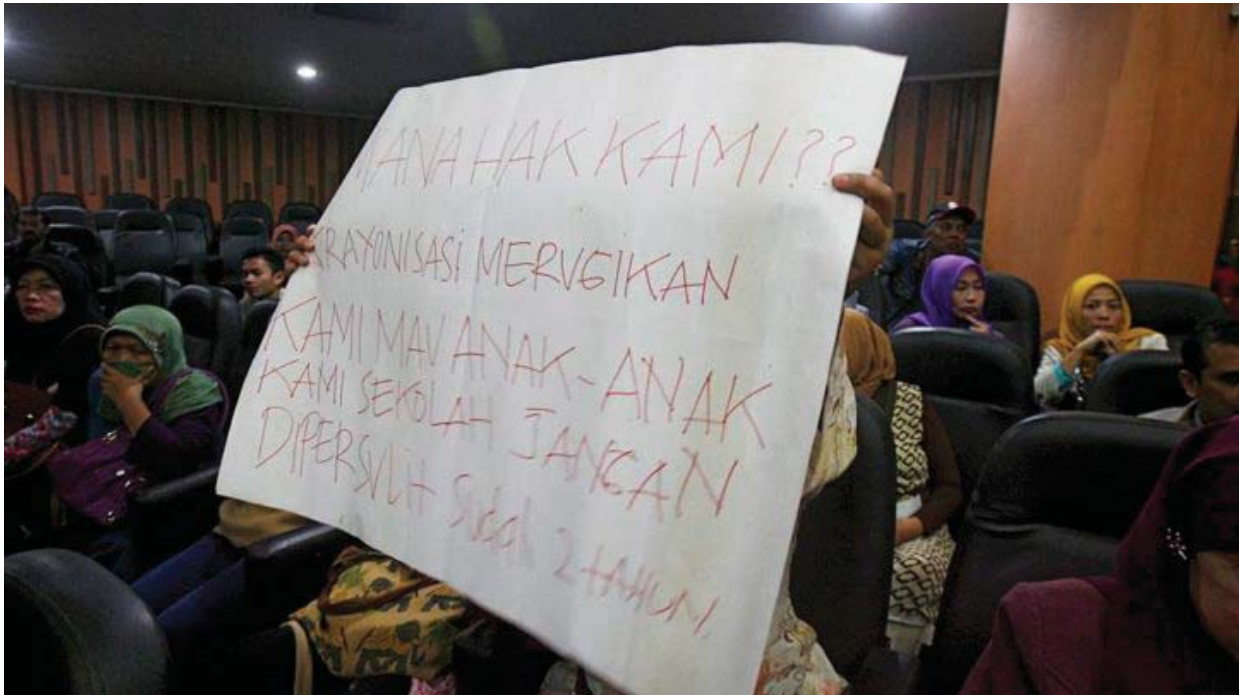 MANA HAK KAMI??
KRAYONISASI MERUGIKAN
KAMI MAU ANAK-ANAK
KAMI SEKOLAH JANGAN
DIPERSULIT Sudah 2 tAHUN.